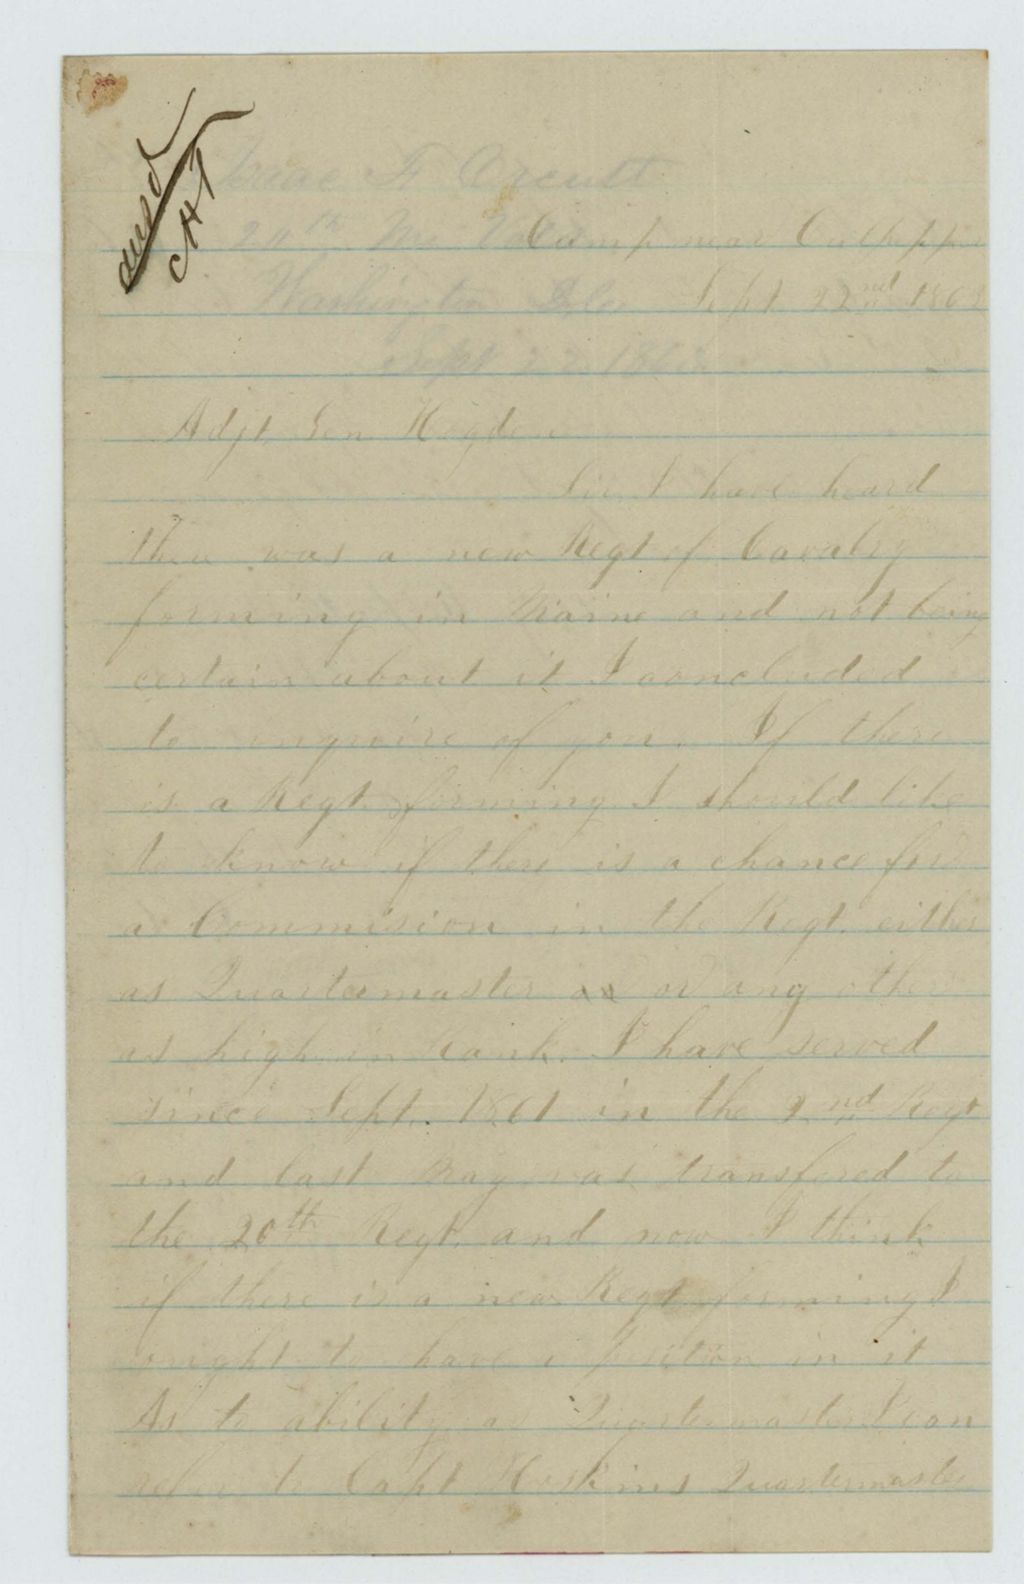 ansd
Isaac F Orcutt
20th Me Vols
Camp near Culpepper
Washington
Sept 22nd 1863
Sept 22 1863
Adjt. Gen. Hogdon
Sir, I have heard
there was a new Regt of Cavalry
forming in Maine and not being
certain about it I concluded
to inquire of you. If there
is a Regt. forming I should like
to know if there is a chance for
a Commision in the Regt. either
as Quartermaster or any other
as high in Rank. I have served
since Sept. 1861 in the 2nd Regt
and last May was transfered to
the 20th Regt. and now I think
if there is a new Regt forming I
ought to have a position in it
As to ability as Quartermaster I can
refer to Capt Hoskins Quartermaster